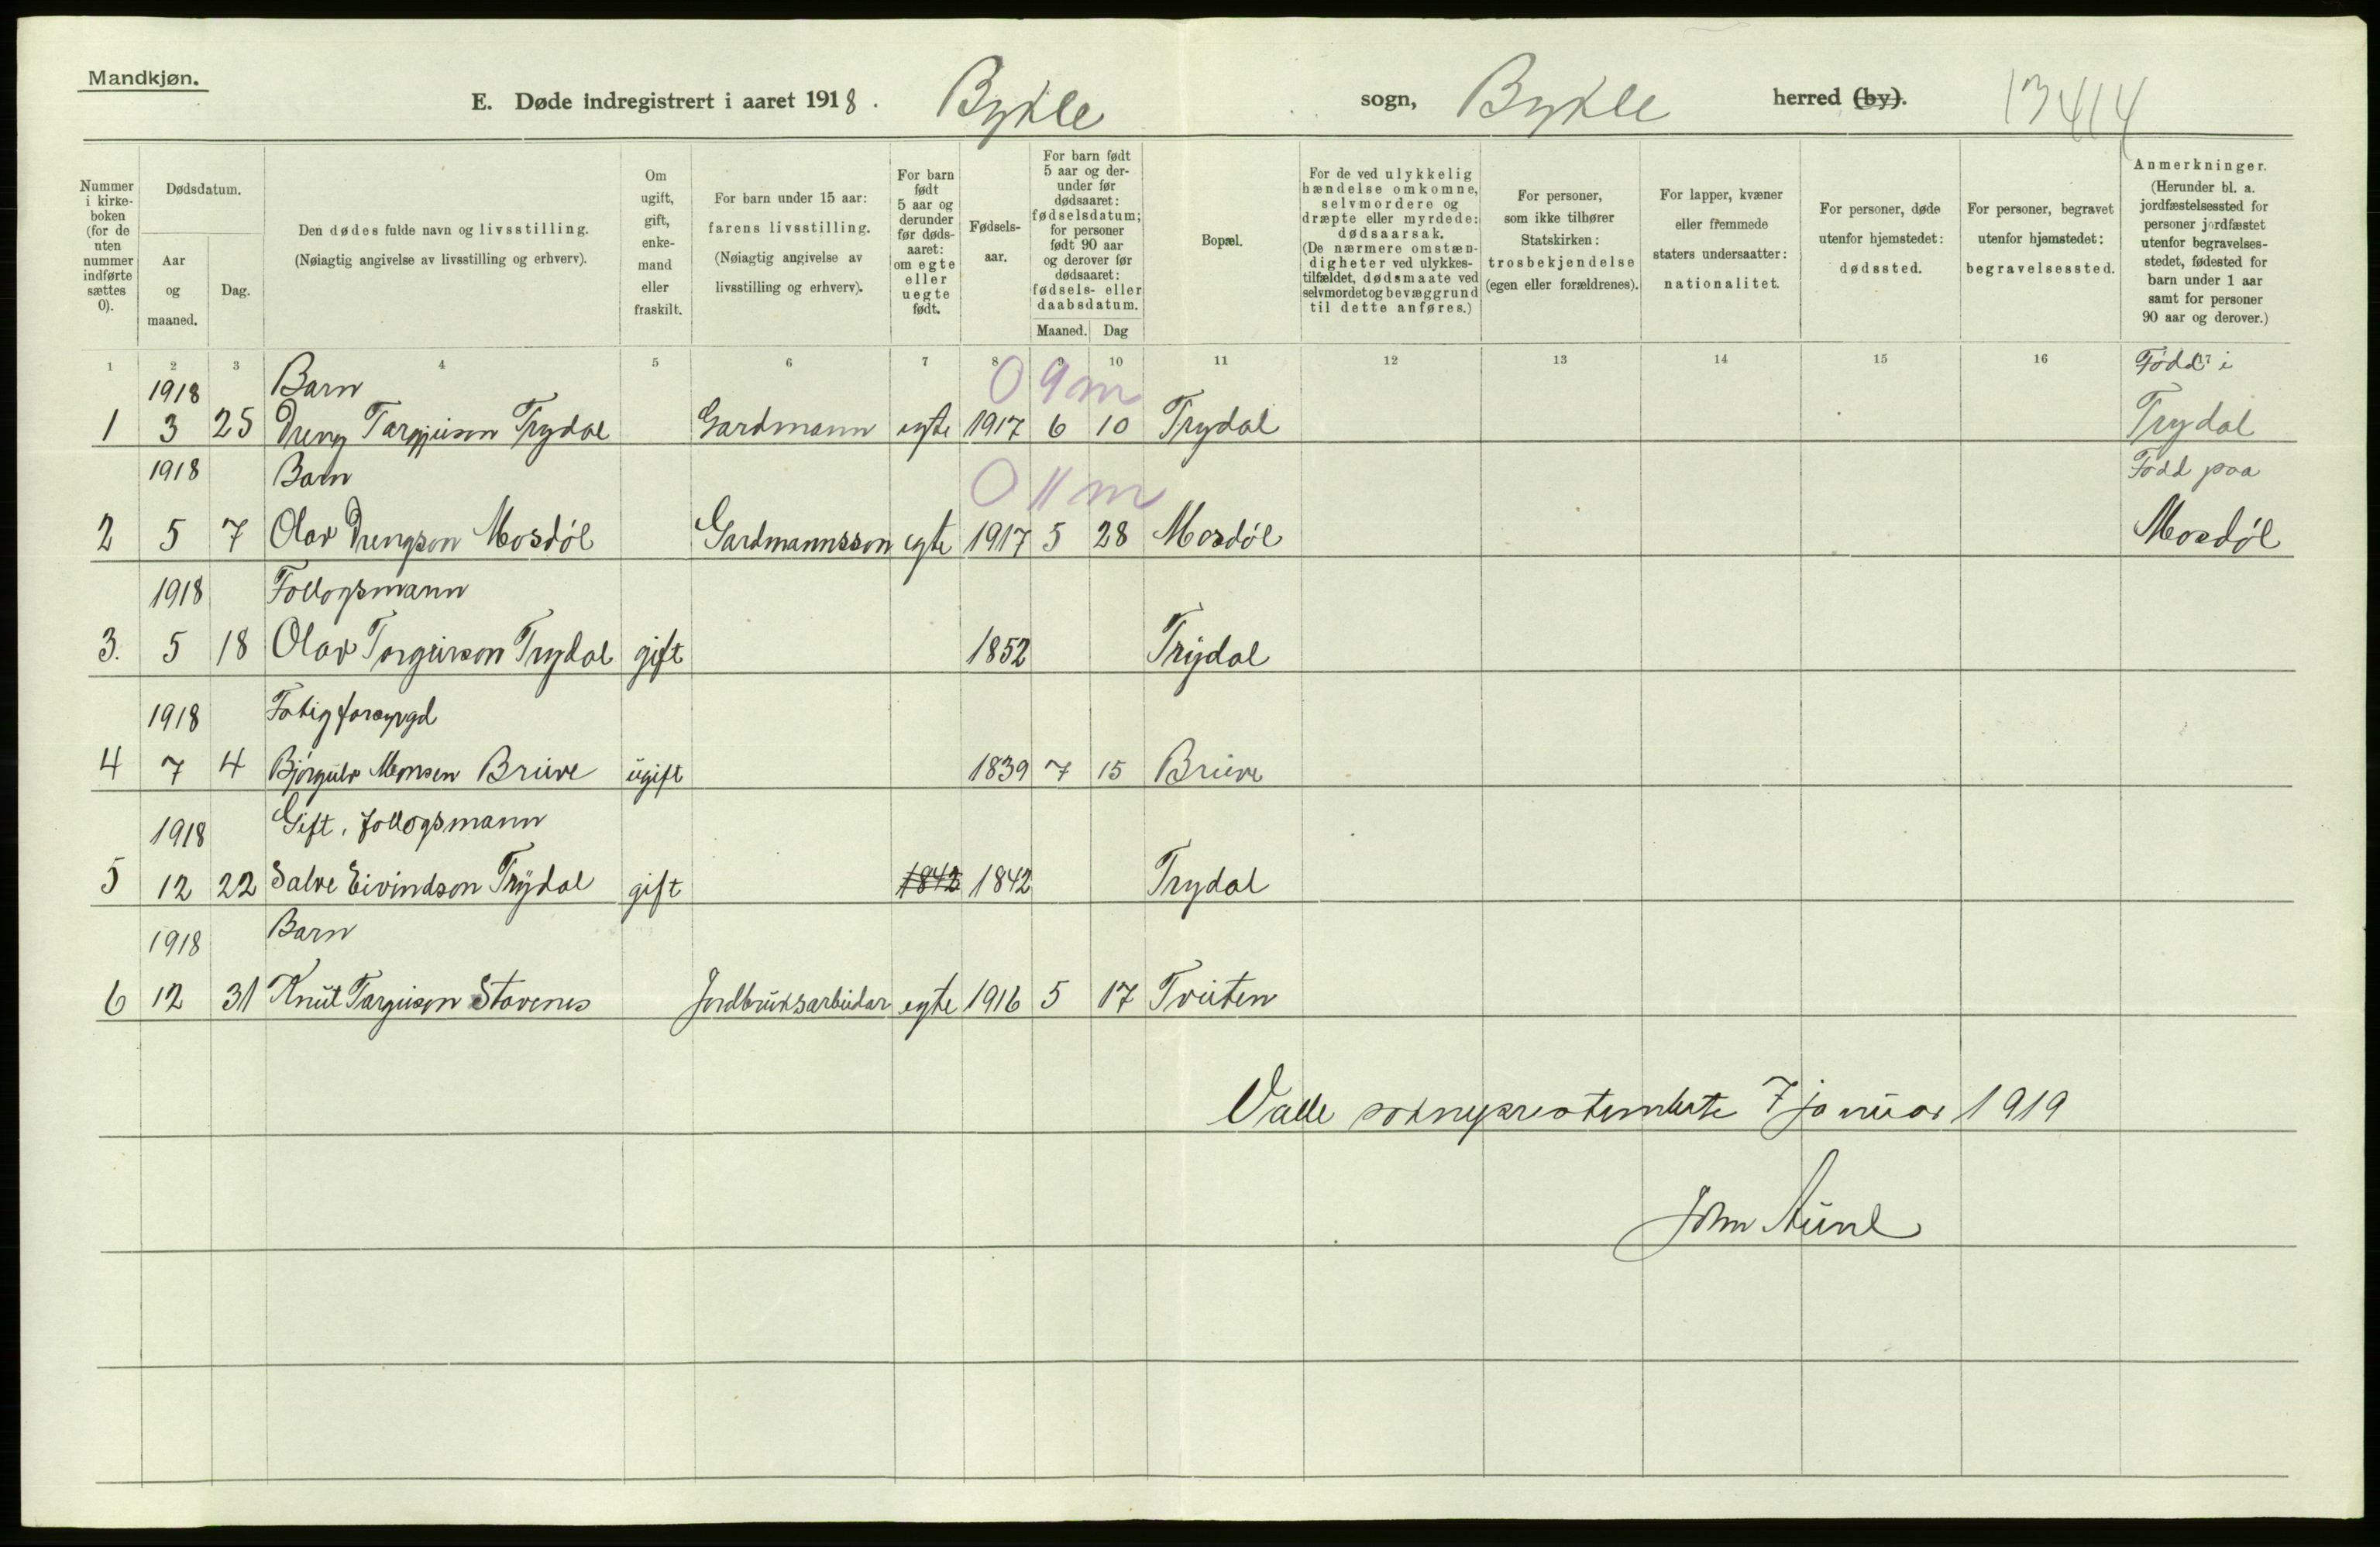 Mandkjøn.
E. Døde indregistrert i aaret 1918. Bykle sogn, Bykle herred (by). 13414
Nummer i kirke-boken (for de uten nummer indførte sættes 0).
Dødsdatum.
Aar og maaned.
Dag.
Den dødes fulde navn og livsstilling.
(Nøiagtig angivelse av livsstilling og erhverv).
Om ugift, gift, enke-mand eller fraskilt.
For barn under 15 aar:
farens livsstilling.
(Nøiagtig angivelse av livsstilling og erhverv).
For barn født 5 aar og derunder før døds-aaret: om egte eller uegte født.
Fødsels-aar.
For barn født 5 aar og der-under før dødsaaret: fødselsdatum; for personer født 90 aar og derover før dødsaaret: fødsels- eller daabsdatum.
Maaned. Dag
Bopæl.
For de ved ulykkelig hændelse omkomne, selvmordere og dræpte eller myrdede: dødsaarsak. (De nærmere omstæn-digheter ved ulykkes-tilfældet, dødsmaate ved selvmordet og bevæggrund til dette anføres.)
For personer, som ikke tilhører Statskirken: trosbekjendelse (egen eller forældrenes).
For lapper, kvæner eller fremmede staters undersaatter: nationalitet.
For personer, døde utenfor hjemstedet: dødssted.
For personer, begravet utenfor hjemstedet: begravelsessted.
Anmerkninger.
(Herunder bl. a. jordfæstelsessted for personer jordfæstet utenfor begravelses-stedet, fødested for barn under 1 aar samt for personer 90 aar og derover.)
1 2 3 4 5 6 7 8 9 10 11 12 13 14 15 16 17
1918 Barn 0 9 m Fødd i
1 3 25 Dreng Targjuson Trydal Gardmann egte 1917 6 10 Trydal Trydal
1918 Barn 0 11 m Fødd paa
2 5 7 Olav Drengson Mosdøl Gardmannsson egte 1917 5 28 Mosdøl Mosdøl
1918 Follogsmann
3. 5 18 Olav Torgeirson Trydal gift 1852 Trydal
1918 Fatigforsyrgd
4 7 4 Bjørgulv Monsen Bruve ugift 1839 7 15 Bruve
1918 Gift, follogsmann
5 12 22 Salve Eivindson Trydal gift 1842 1842 Trydal
1918 Barn
6 12 31 Knut Targjuson Stavenes Jordbruksarbeidar egte 1916 5 17 Tveiten
Valle sokneprestembete 7 januar 1919
John Aune